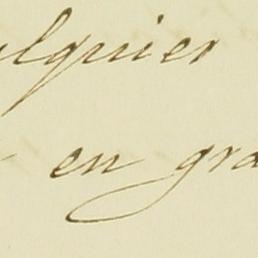 ulguier
en gra